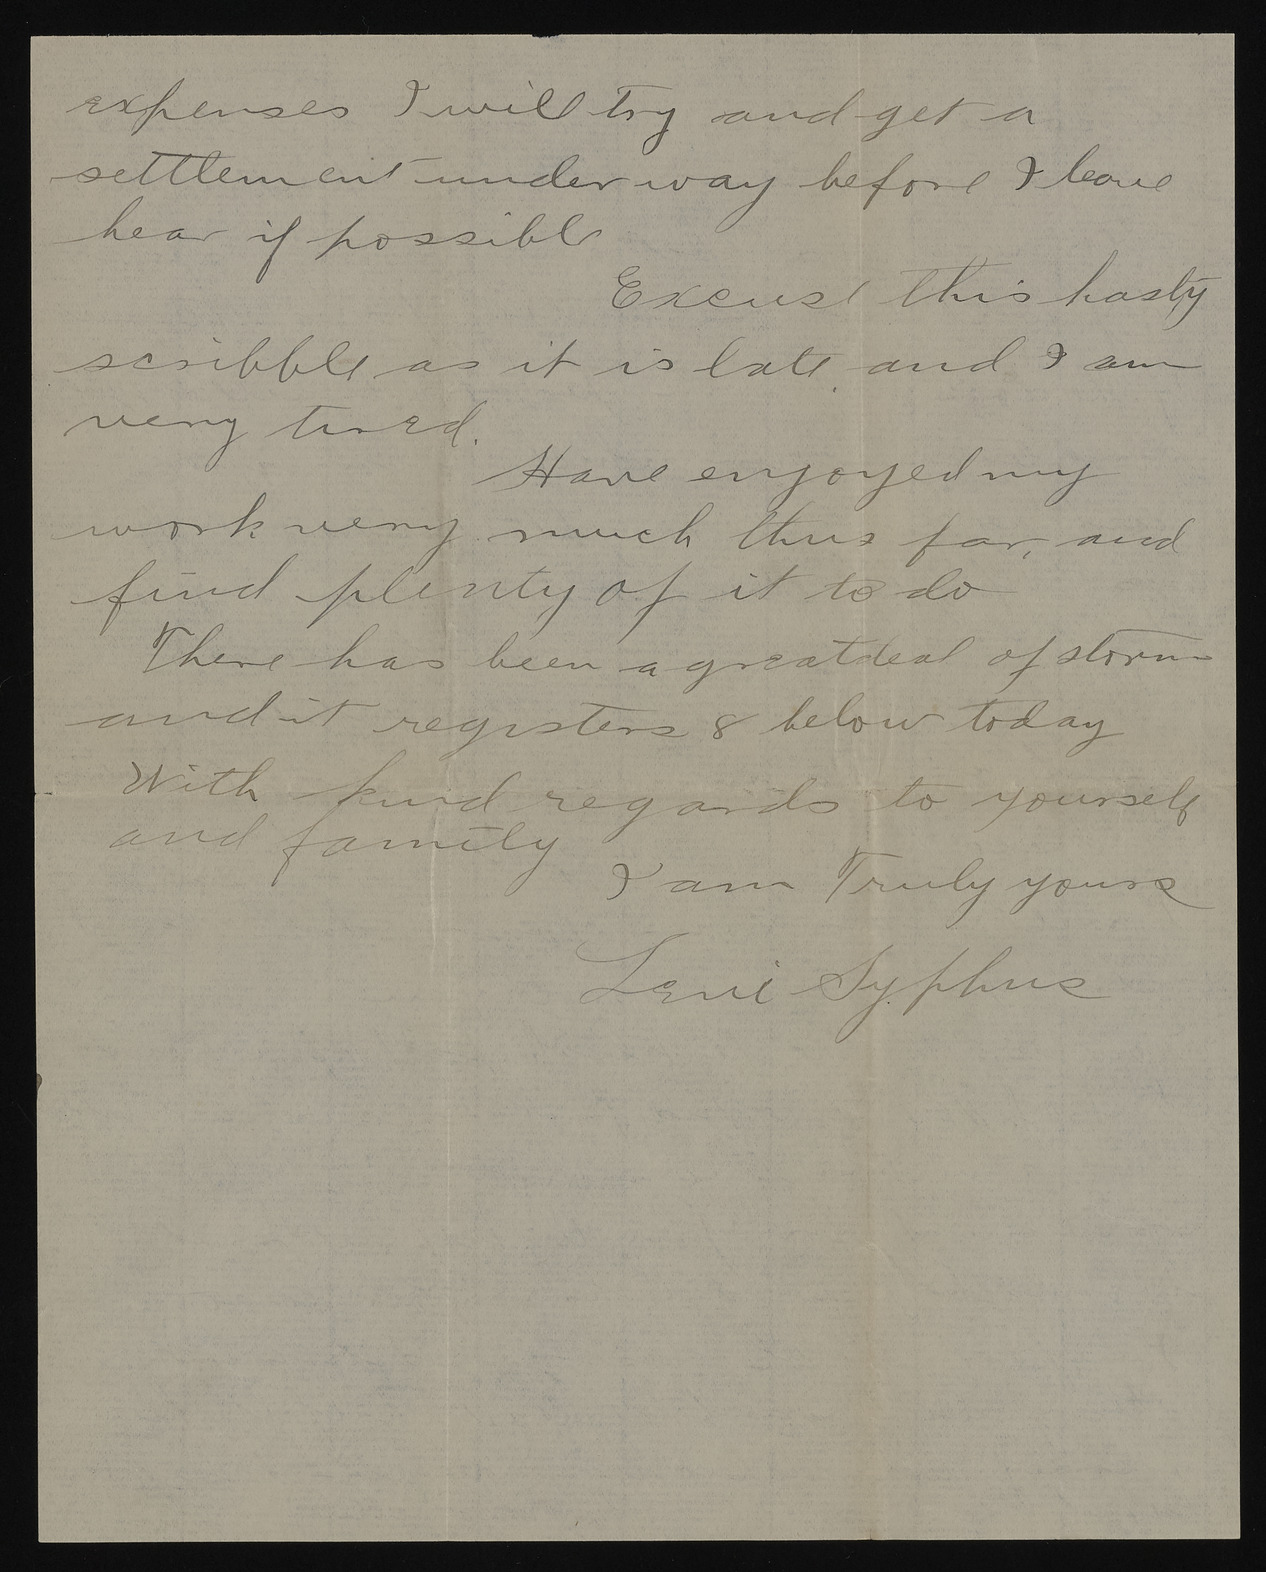 expenses I will try and get a
settlement under way before I leave
hear if possible
Excuse this hasty
scribble as it is late and I am
very tired.
Have enjoyed my
work very much thus far, and
find plenty of it to do
There has been a great deal of storm
and it registers 8 below today
With kind regards to yourself
and family
I am Truly yours
Levi Syphus